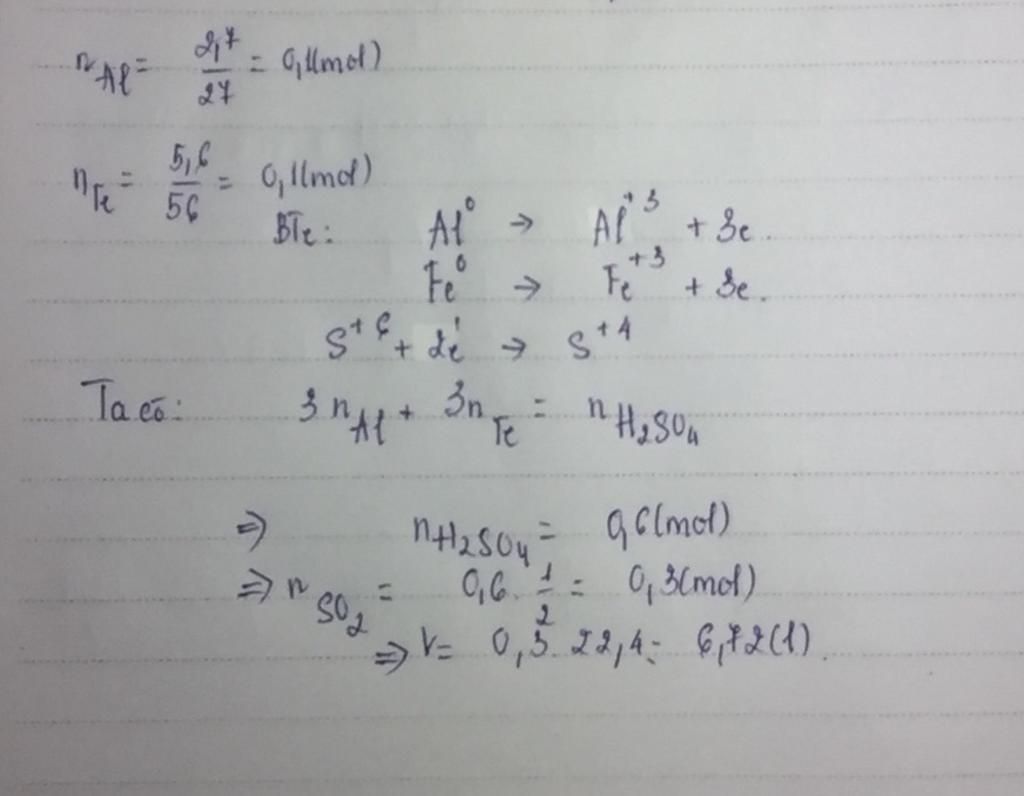 n_Al = 2,7/27 = 0,1(mol)
n_Fe = 5,6/56 = 0,1(mol)
BTe: Al⁰ → Al⁺³ + 3e.
Fe⁰ → Fe⁺³ + 3e.
S⁺⁶ + 2e → S⁺⁴
Ta có: 3n_Al + 3n_Fe = n_H₂SO₄
⇒ n_H₂SO₄ = 0,6(mol)
⇒ n_SO₂ = 0,6 . 1/2 = 0,3(mol)
⇒ V = 0,3 . 22,4 = 6,72(l).